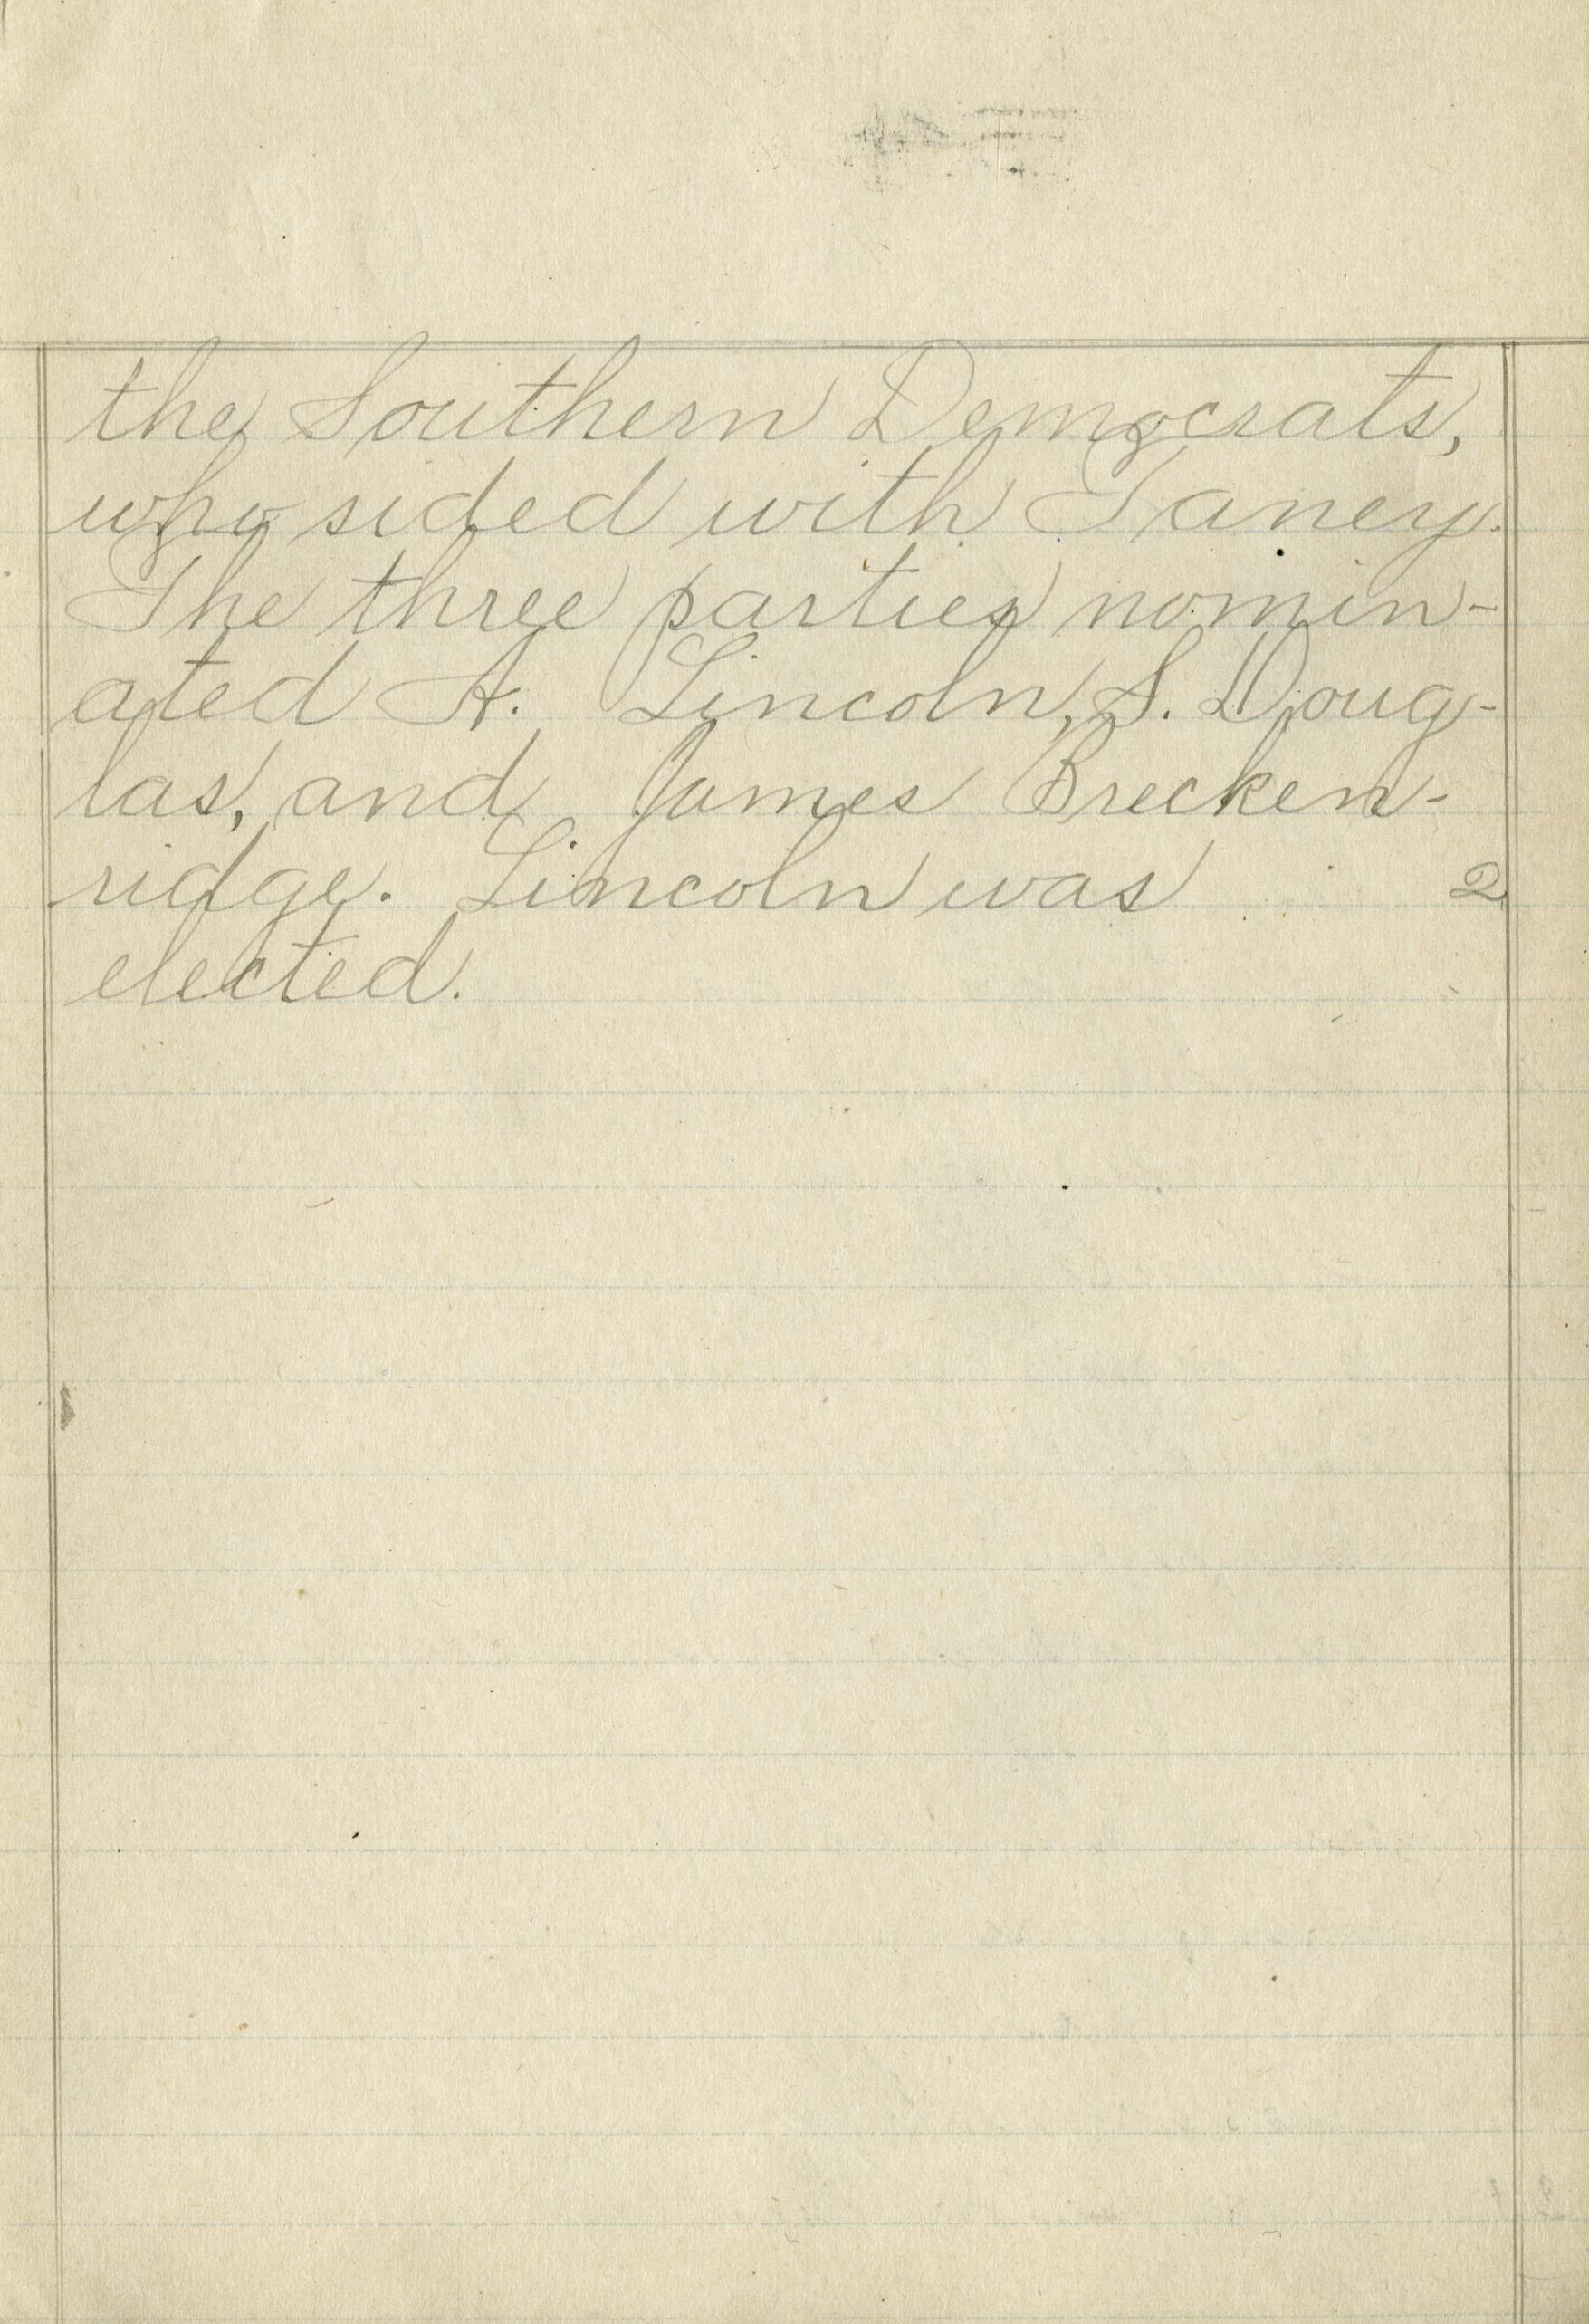 the Southern Democrats,
who sided with Taney.
The three parties nomin-
ated A. Lincoln, S. Doug-
las, and James Brecken-
ridge. Lincoln was 2
elected.